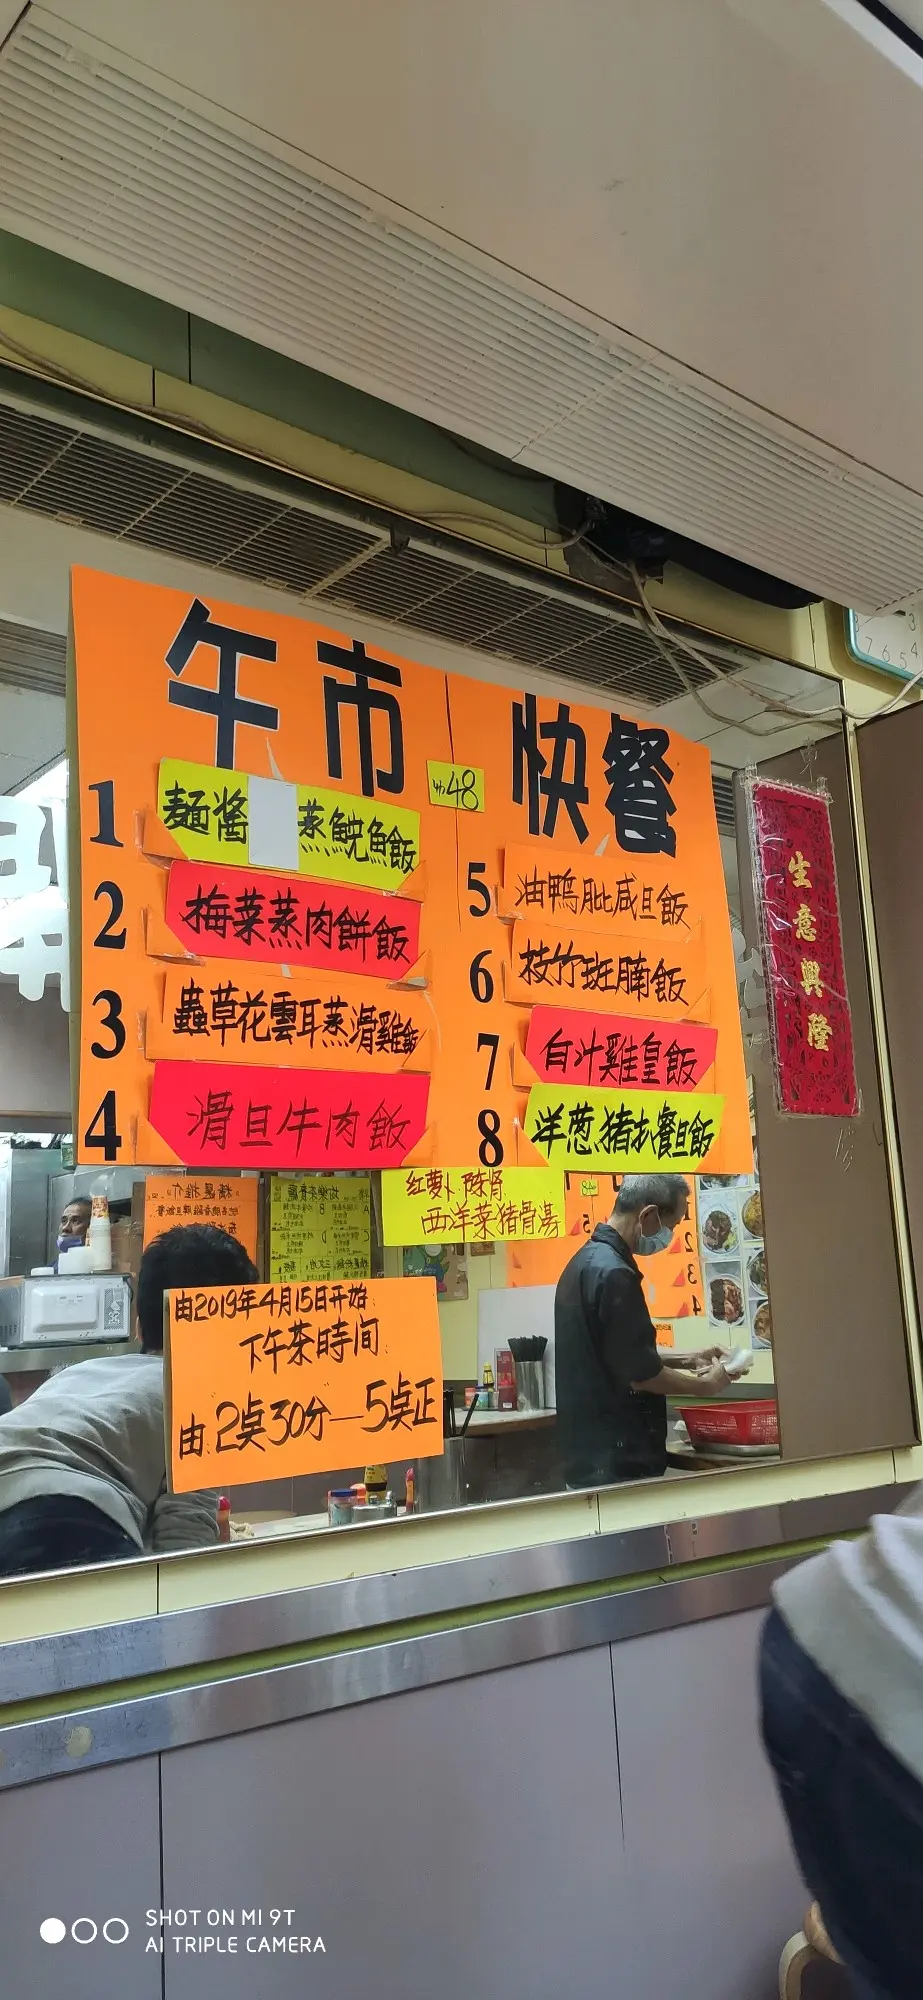 午市 快餐
48
1 麵醬 蒸鯇魚飯
2 梅菜蒸肉餅飯
3 蟲草花雲耳蒸滑雞飯
4 滑旦牛肉飯
5 油鴨肶咸旦飯
6 枝竹斑腩飯
7 白汁雞皇飯
8 洋葱猪扒餐旦飯
红萝卜.陈肾
西洋菜猪骨湯
由2019年4月15日开始
下午茶時間
由:2桌30分—5桌正
生意興隆
3
7 6 5 4
SHOT ON MI 9T
AI TRIPLE CAMERA